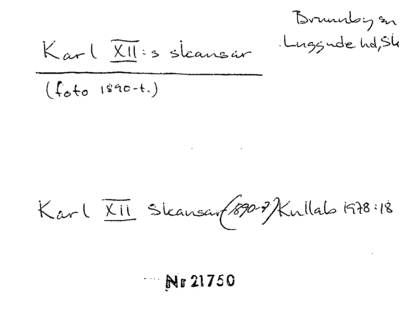 Brunnby sn
Luggude hd, Sk
Karl XII:s skansar
(foto 1890-t.)
Karl XII skansar (1890-t) Kullab 1978:18
Nr 21750